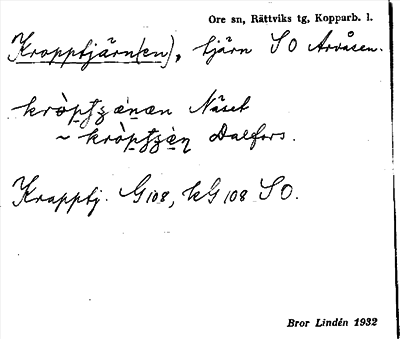 Ore sn, Rättviks tg, Kopparb. l.
Kropptjärn(en), tjärn SO Arvåsen.
Näset
~ Dalfors.
Krapptj. G108, kG108 SO.
Bror Lindén 1932